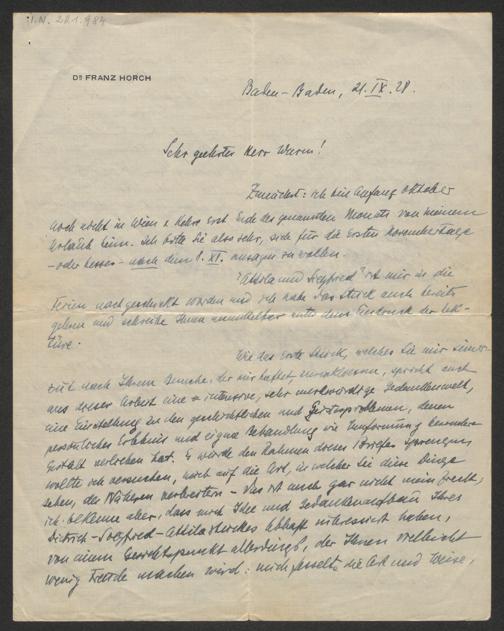 I.N. 201.984
DR FRANZ HORCH
Baden-Baden, 21. IX. 28.
Sehr geehrter Herr Wurm!
Zunächst: ich bin Anfang Oktober
noch nicht in Wien & kehre erst Ende des genannten Monats von meinem
Urlaub heim. Ich bitte Sie also sehr, sich für die ersten Novembertage
- oder besser - nach dem 1. XI. ansagen zu wollen.
"Attila und Siegfried" ist mir in die
Ferien nachgeschickt worden und ich habe das Stück auch bereits
gelesen und schreibe Ihnen unmittelbar unter dem Eindruck der Lek-
türe.
Wie das erste Stück, welches Sie mir
nach Ihrem Besuche, der mir haftet, spricht auch
aus dieser Arbeit eine intensive, sehr merkwürdige Gedankenwelt,
eine Einstellung zu den geschichtlichen und Zeitproblemen, denen
persönliches Erlebnis und eigene Behandlung wie Umformung besondere
Gestalt verliehen hat. Es würde den Rahmen dieses Briefes sprengen,
wollte ich versuchen, mich auf die Art, in welcher Sie diese Dinge
sehen, des Näheren verbreitern - das ist auch gar nicht mein Recht,
ich bekenne aber, dass mich Idee und Gedankenaufbau Ihres
Dietrich-Siegfried-Attilawerkes lebhaft interessiert haben,
von einem Gesichtspunkt allerdings, der Ihnen vielleicht
wenig Freude machen wird: mich fesselte die Art und Weise,